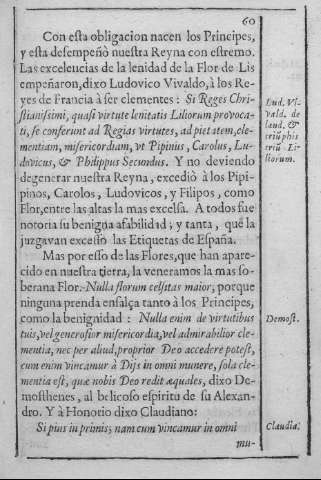 60
Con esta obligacion nacen los Principes,
y esta desempeñò nuestra Reyna con estremo.
Las excelencias de la lenidad de la Flor de Lis
empeñaron, dixo Ludovico Vivaldo, à los Re-
yes de Francia à ser clementes: Si Reges Chri-
stianissimi, quasi virtute lenitatis Liliorum provoca-
ti, se conferunt ad Regias virtutes, ad pietatem, cle-
mentiam, misericordiam, vt Pipinius, Carolus, Lu-
dovicus, & Philippus Secundus. Y no deviendo
degenerar nuestra Reyna, excediò à los Pipi-
pinos, Carolos, Ludovicos, y Filipos, como
Flor, entre las altas la mas excelsa. A todos fue
notoria su benigna afabilidad; y tanta, què la
juzgavan excesso las Etiquetas de España.
Mas por esso de las Flores, que han apare-
cido en nuestra tierra, la veneramos la mas so-
berana Flor. Nulla florum celsitas maior; porque
ninguna prenda ensalça tanto à los Principes,
como la benignidad: Nulla enim de virtutibus
tuis, vel generosior misericordia, vel admirabilior cle-
mentia, nec per aliud, proprior Deo accedere potest,
cum enim vincamur à Dijs in omni munere, sola cle-
mentia est, quæ nobis Deo redit æquales, dixo De-
mosthenes, al belicoso espiritu de su Alexan-
dro. Y à Honorio dixo Claudiano:
Si pius in primis; nam cum vincamur in omni
mu-
Lud. Vi-
vald. de
laud. &
triũphis
triũ Li-
liorum.
Demost.
Claudia.